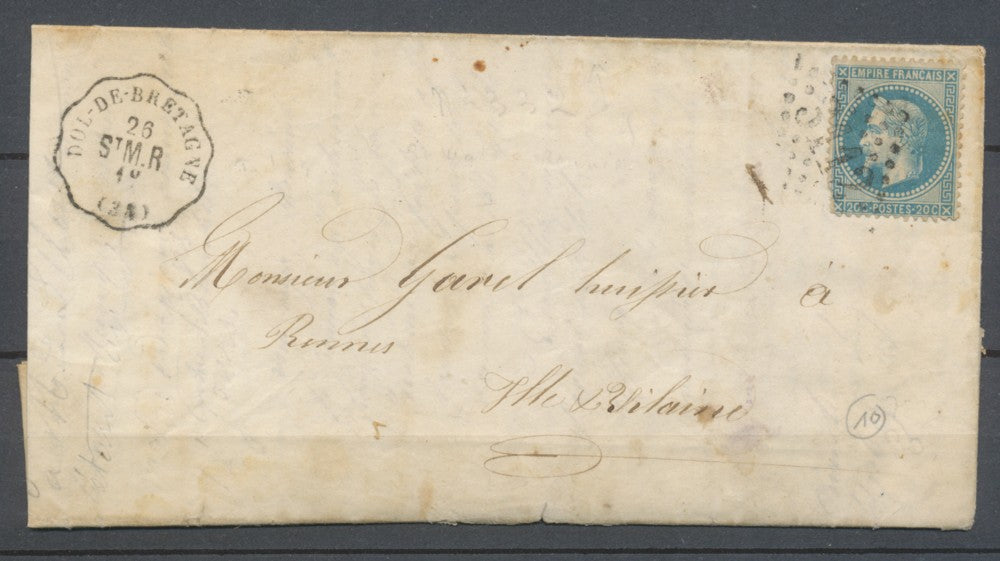 DOL-DE-BRETAGNE
26
Sᵀ M.R
(34)
EMPIRE FRANÇAIS
20C-POSTES-20C
Monsieur Garel huissier à
Rennes
Ille & Vilaine
10